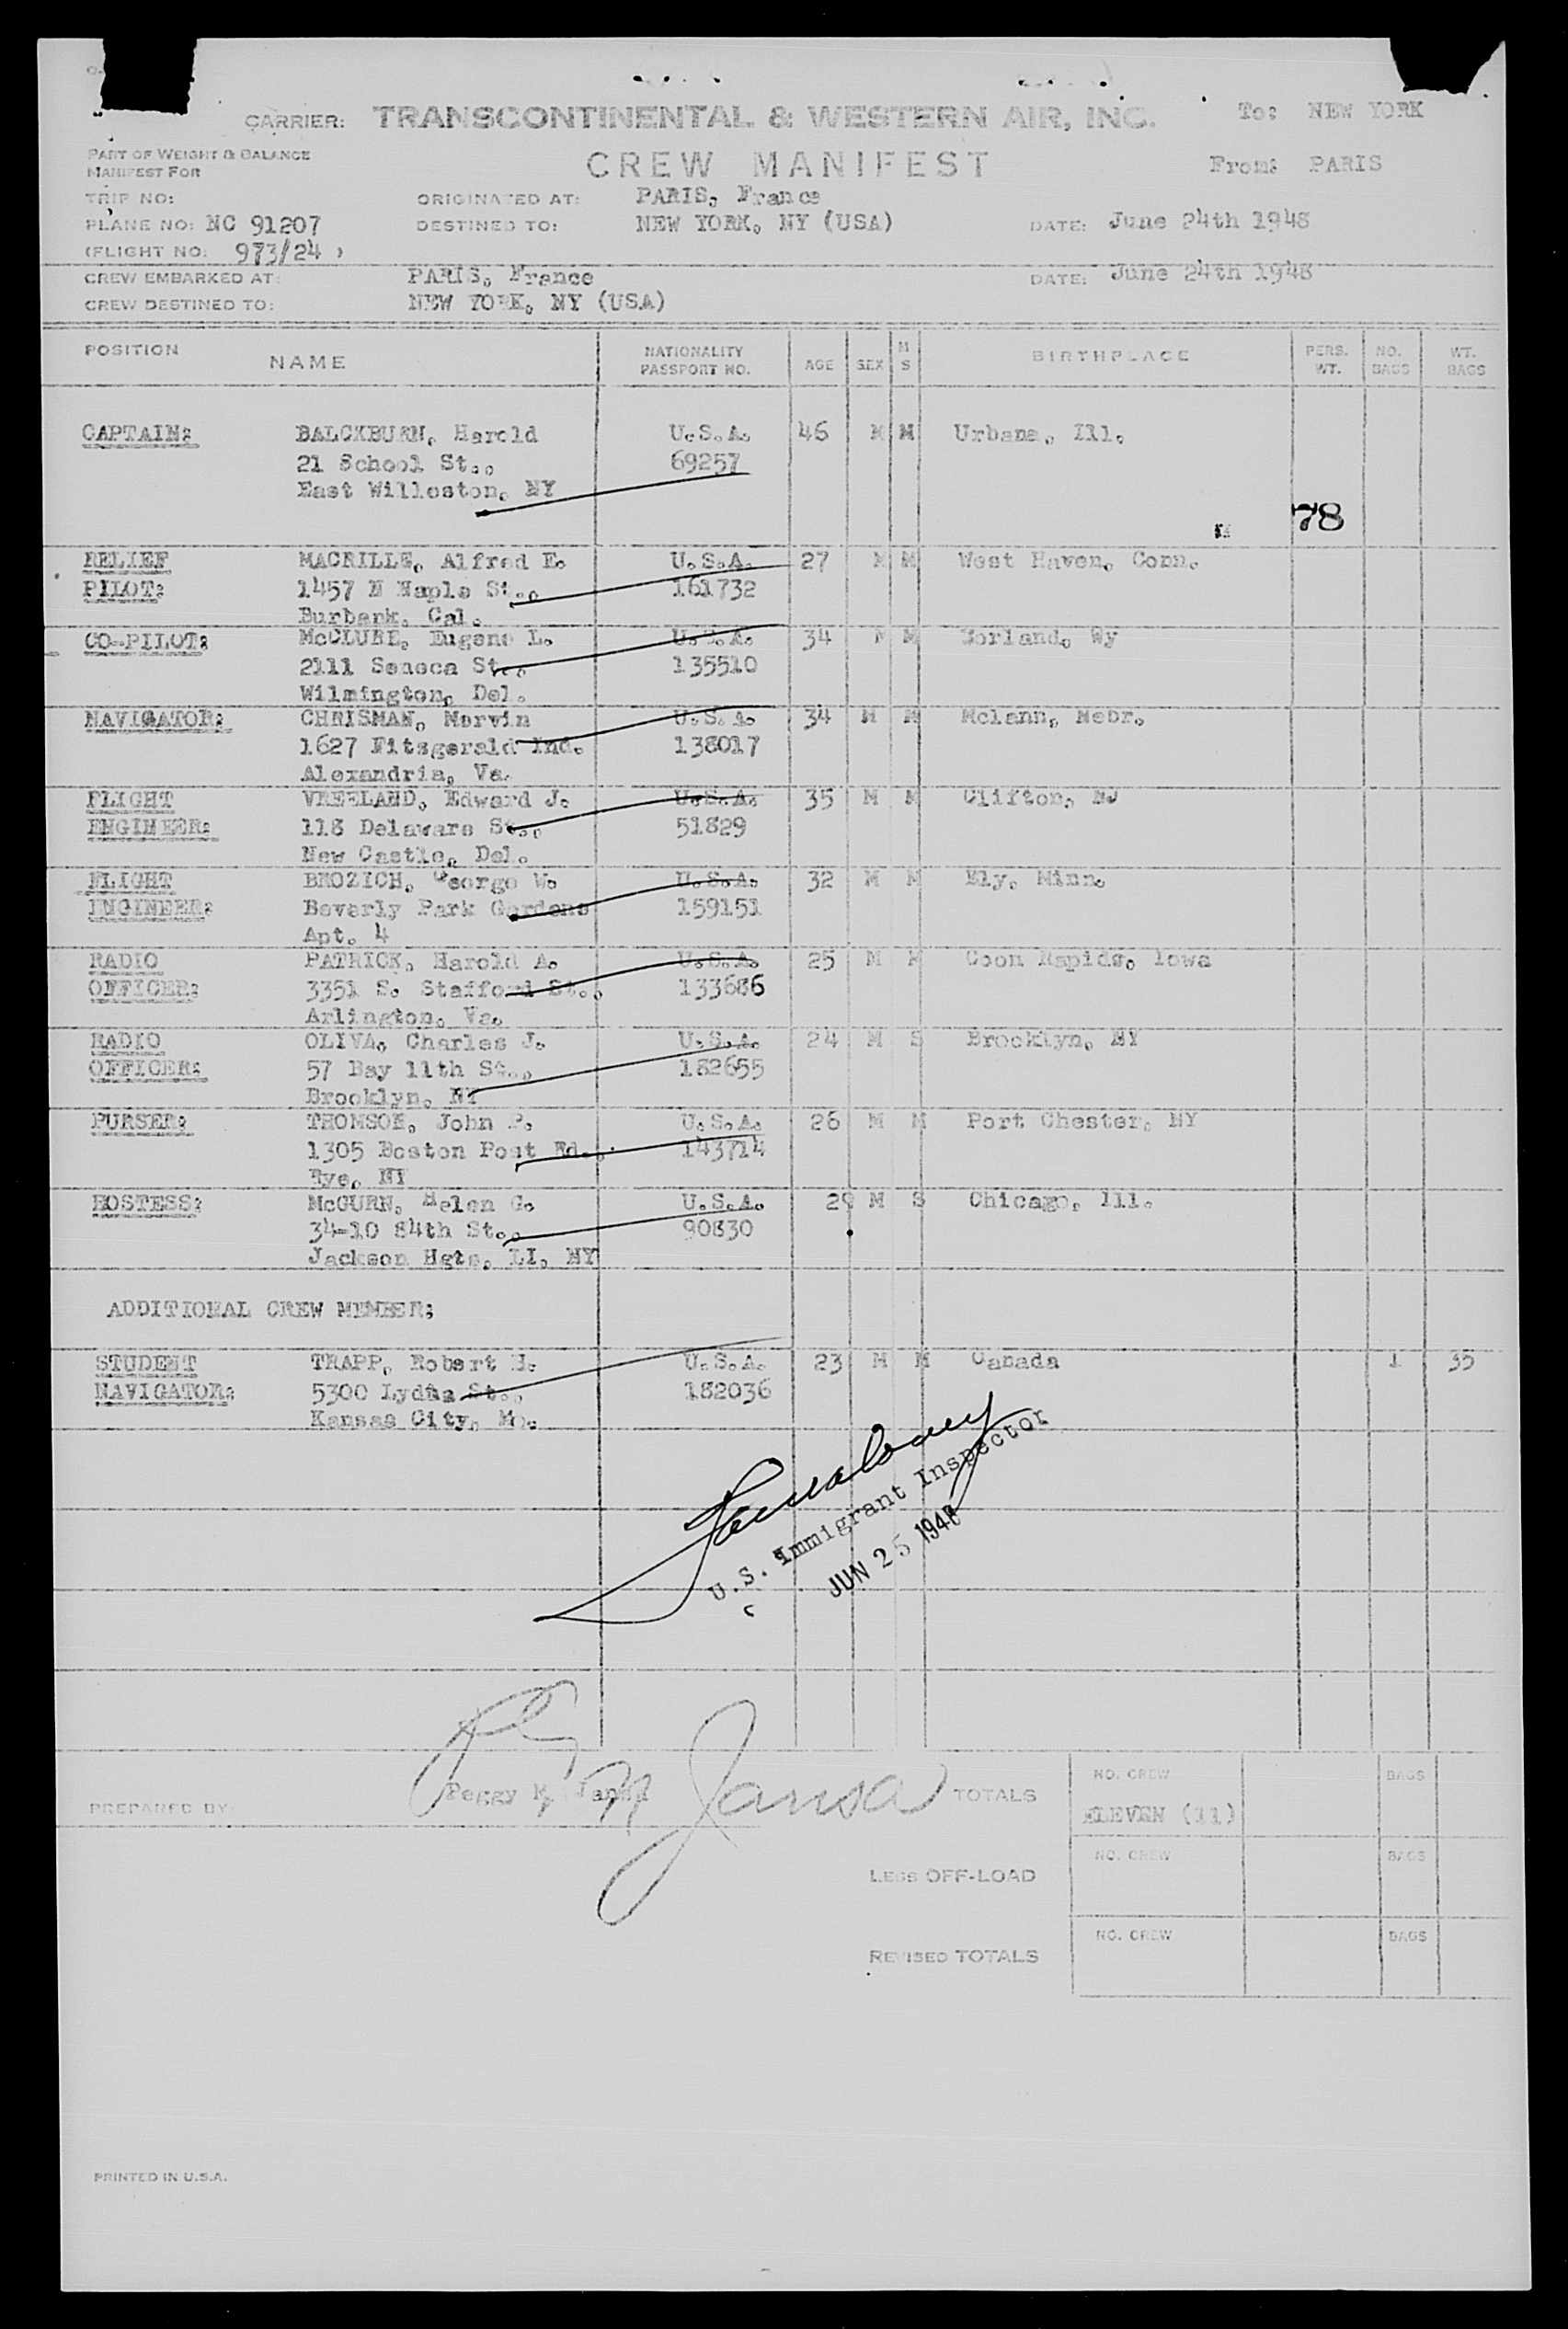 CARRIER: TRANSCONTINENTAL & WESTERN AIR, INC. To: NEW YORK
PART OF WEIGHT & BALANCE
MANIFEST FOR
CREW MANIFEST From: PARIS
TRIP NO: ORIGINATED AT: PARIS, France
PLANE NO: NC 91207 DESTINED TO: NEW YORK, NY (USA) DATE: June 24th 1948
(FLIGHT NO: 973/24 )
CREW EMBARKED AT: PARIS, France DATE: June 24th 1948
CREW DESTINED TO: NEW YORK, NY (USA)
POSITION NAME NATIONALITY PASSPORT NO. AGE SEX M S BIRTHPLACE PERS. WT. NO. BAGS WT. BAGS
CAPTAIN: BALCKBURN, Harold U.S.A. 46 M M Urbana, Ill.
21 School St., 69257
East Williston, NY
78
RELIEF MACRILLE, Alfred E. U.S.A. 27 M M West Haven, Conn.
PILOT: 1457 N Maple St., 161732
Burbank, Cal.
CO-PILOT: McCLURE, Eugene L. U.S.A. 34 M M Wy
2111 Seneca St., 135510
Wilmington, Del.
NAVIGATOR: CHRISMAN, Marvin U.S.A. 34 M M Mclann, Nebr.
1627 Fitzgerald Ind. 138017
Alexandria, Va.
FLIGHT VREELAND, Edward J. U.S.A. 35 M M Clifton, NJ
ENGINEER: 118 Delaware St., 51829
New Castle, Del.
FLIGHT BROZICH, George W. U.S.A. 32 M M Ely, Minn.
ENGINEER: Beverly Park Gardens 159151
Apt. 4
RADIO PATRICK, Harold A. U.S.A. 25 M M Coon Rapids, Iowa
OFFICER: 3351 S. Stafford St., 133686
Arlington, Va.
RADIO OLIVA, Charles J. U.S.A. 24 M S Brooklyn, NY
OFFICER: 57 Bay 11th St., 182655
Brooklyn, NY
PURSER: THOMSON, John P. U.S.A. 26 M M Port Chester, NY
1305 Boston Post Rd., 143714
Rye, NY
HOSTESS: McGURN, Helen G. U.S.A. 29 M S Chicago, Ill.
34-10 84th St., 90830
Jackson Hgts, LI, NY
ADDITIONAL CREW MEMBER:
STUDENT TRAPP, Robert H. U.S.A. 23 M M Canada 1 35
NAVIGATOR: 5300 Lydia St., 182036
Kansas City, Mo.
U.S. Immigrant Inspector
JUN 25 1948
PREPARED BY: Peggy M. Jansa
M Jansa
TOTALS NO. CREW BAGS
ELEVEN (11)
LESS OFF-LOAD NO. CREW BAGS
REVISED TOTALS NO. CREW BAGS
PRINTED IN U.S.A.